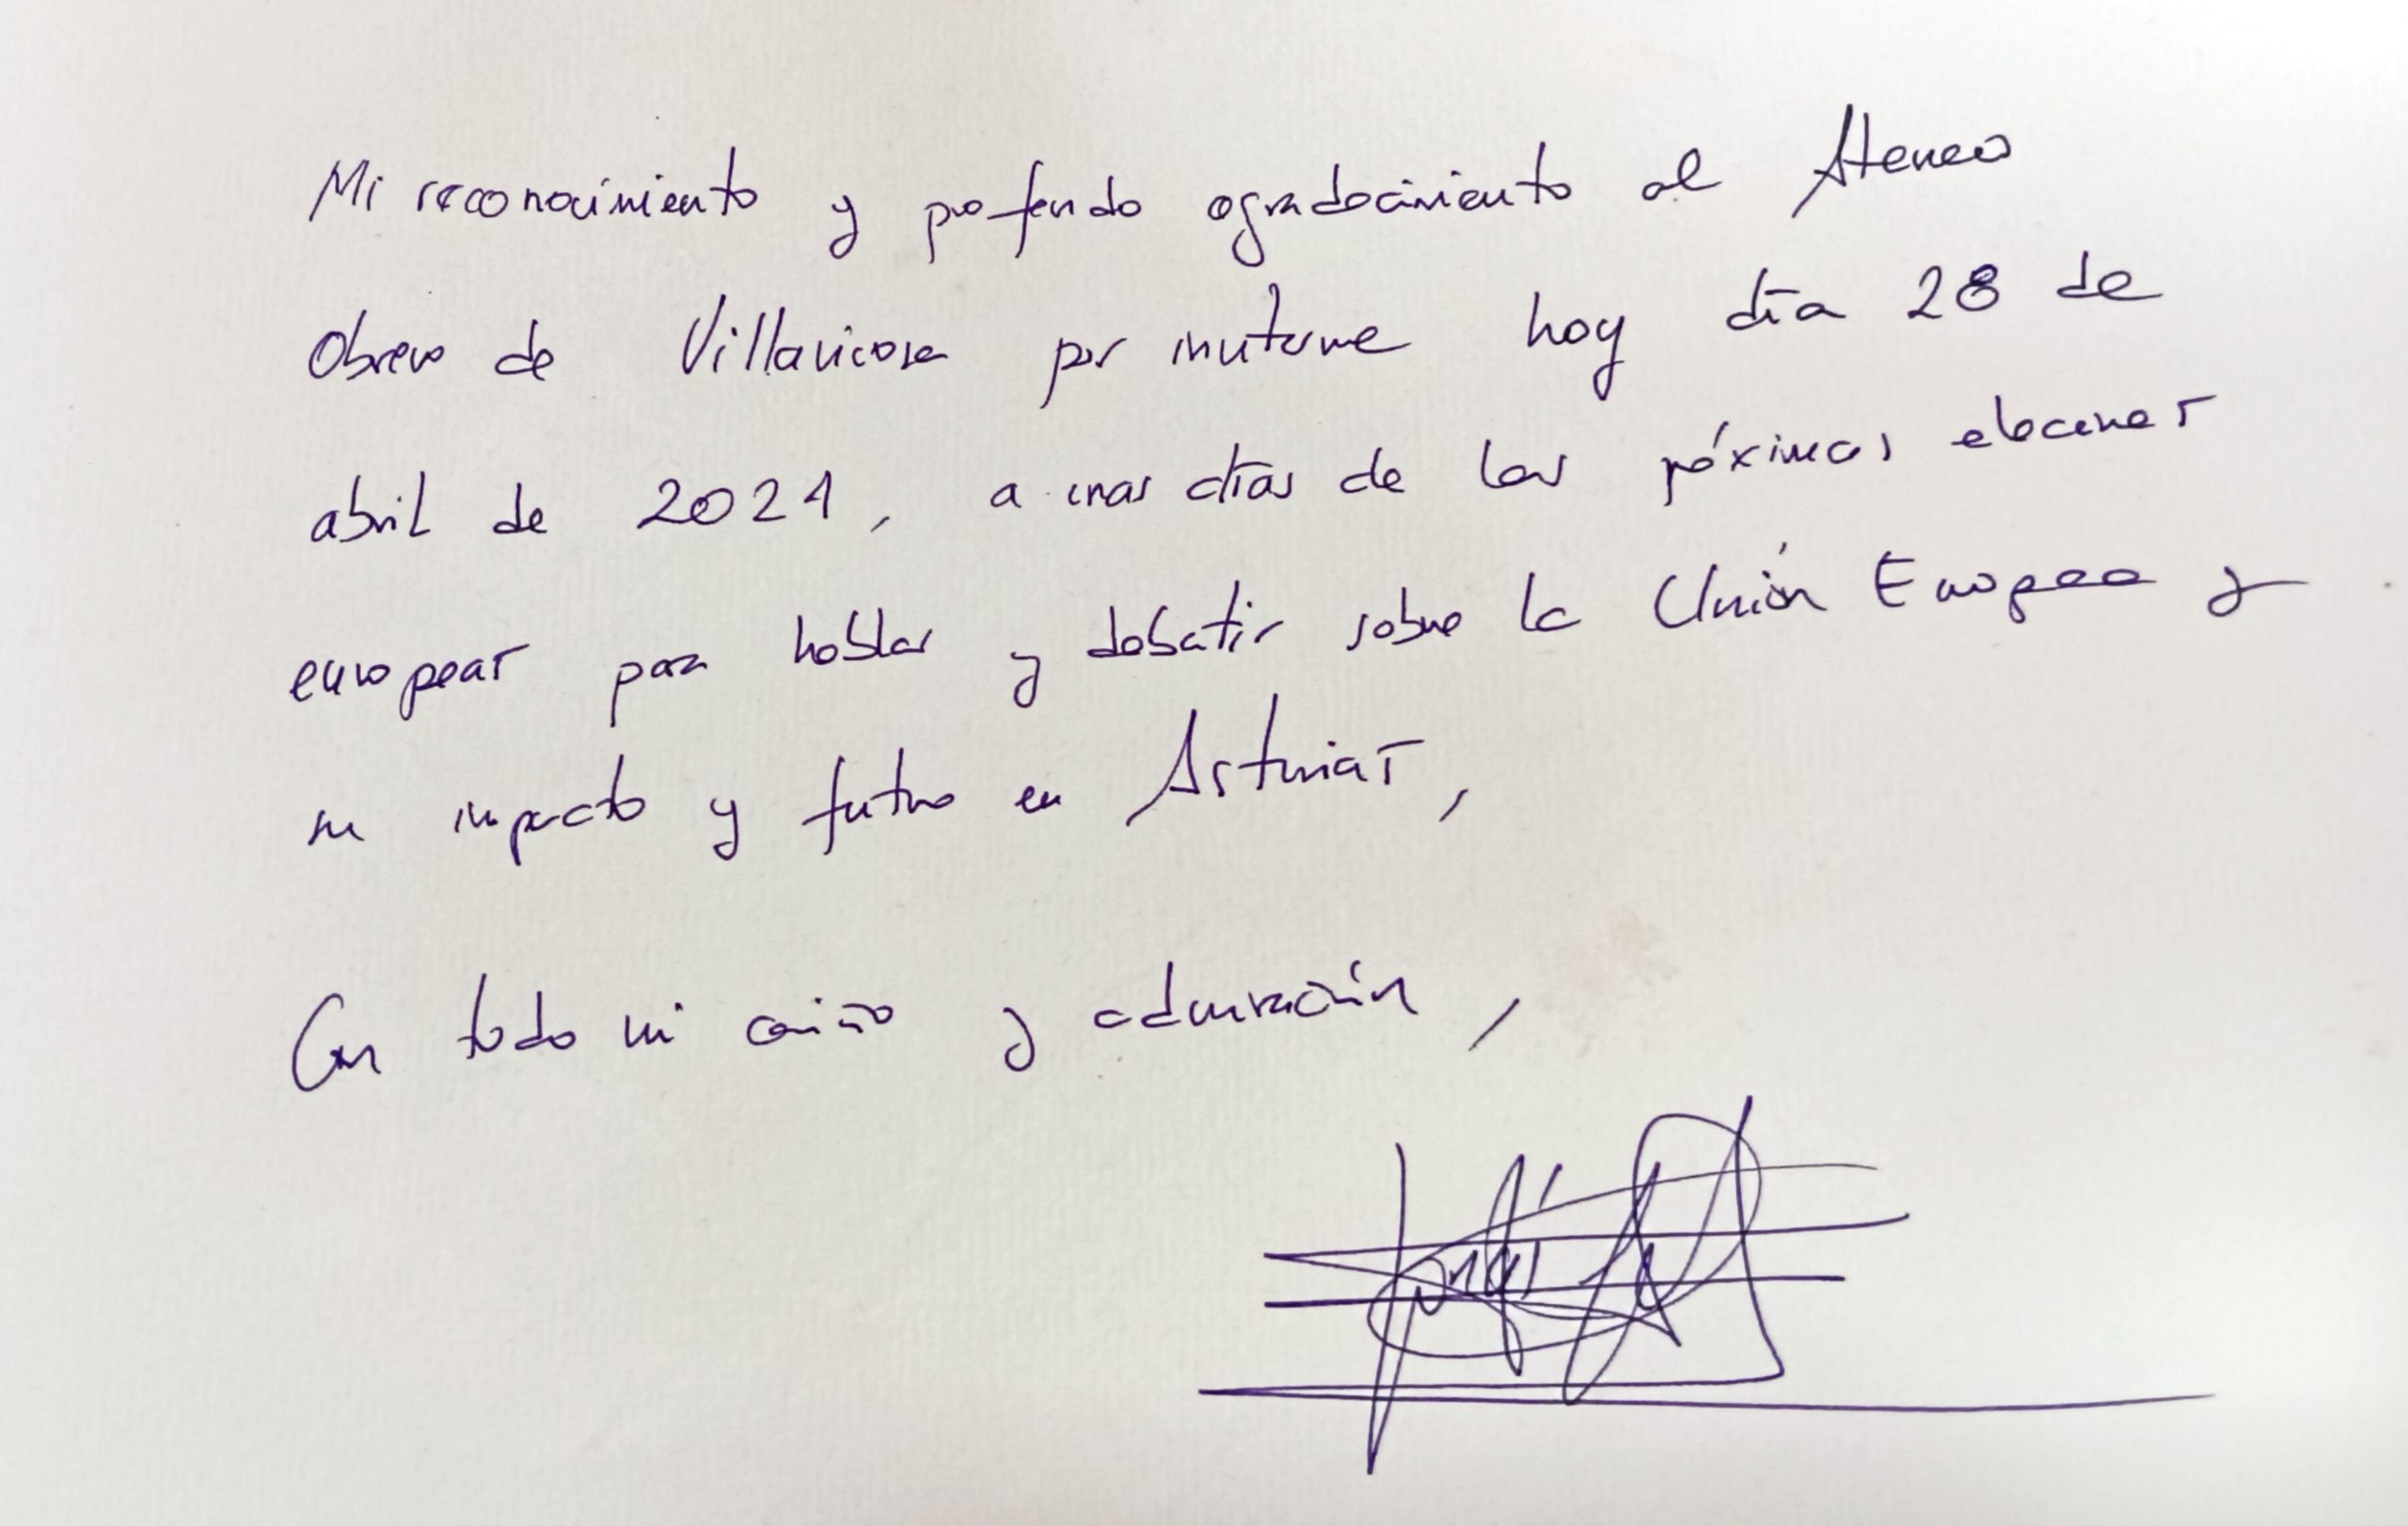 Mi reconocimiento y profundo agradecimiento al Ateneo
Obrero de Villaviciosa por invitarme hoy día 28 de
abril de 2024, a unas días de las próximas elecciones
europeas para hablar y debatir sobre la Unión Europea y
su impacto y futuro en Asturias,
Con todo mi cariño y admiración,